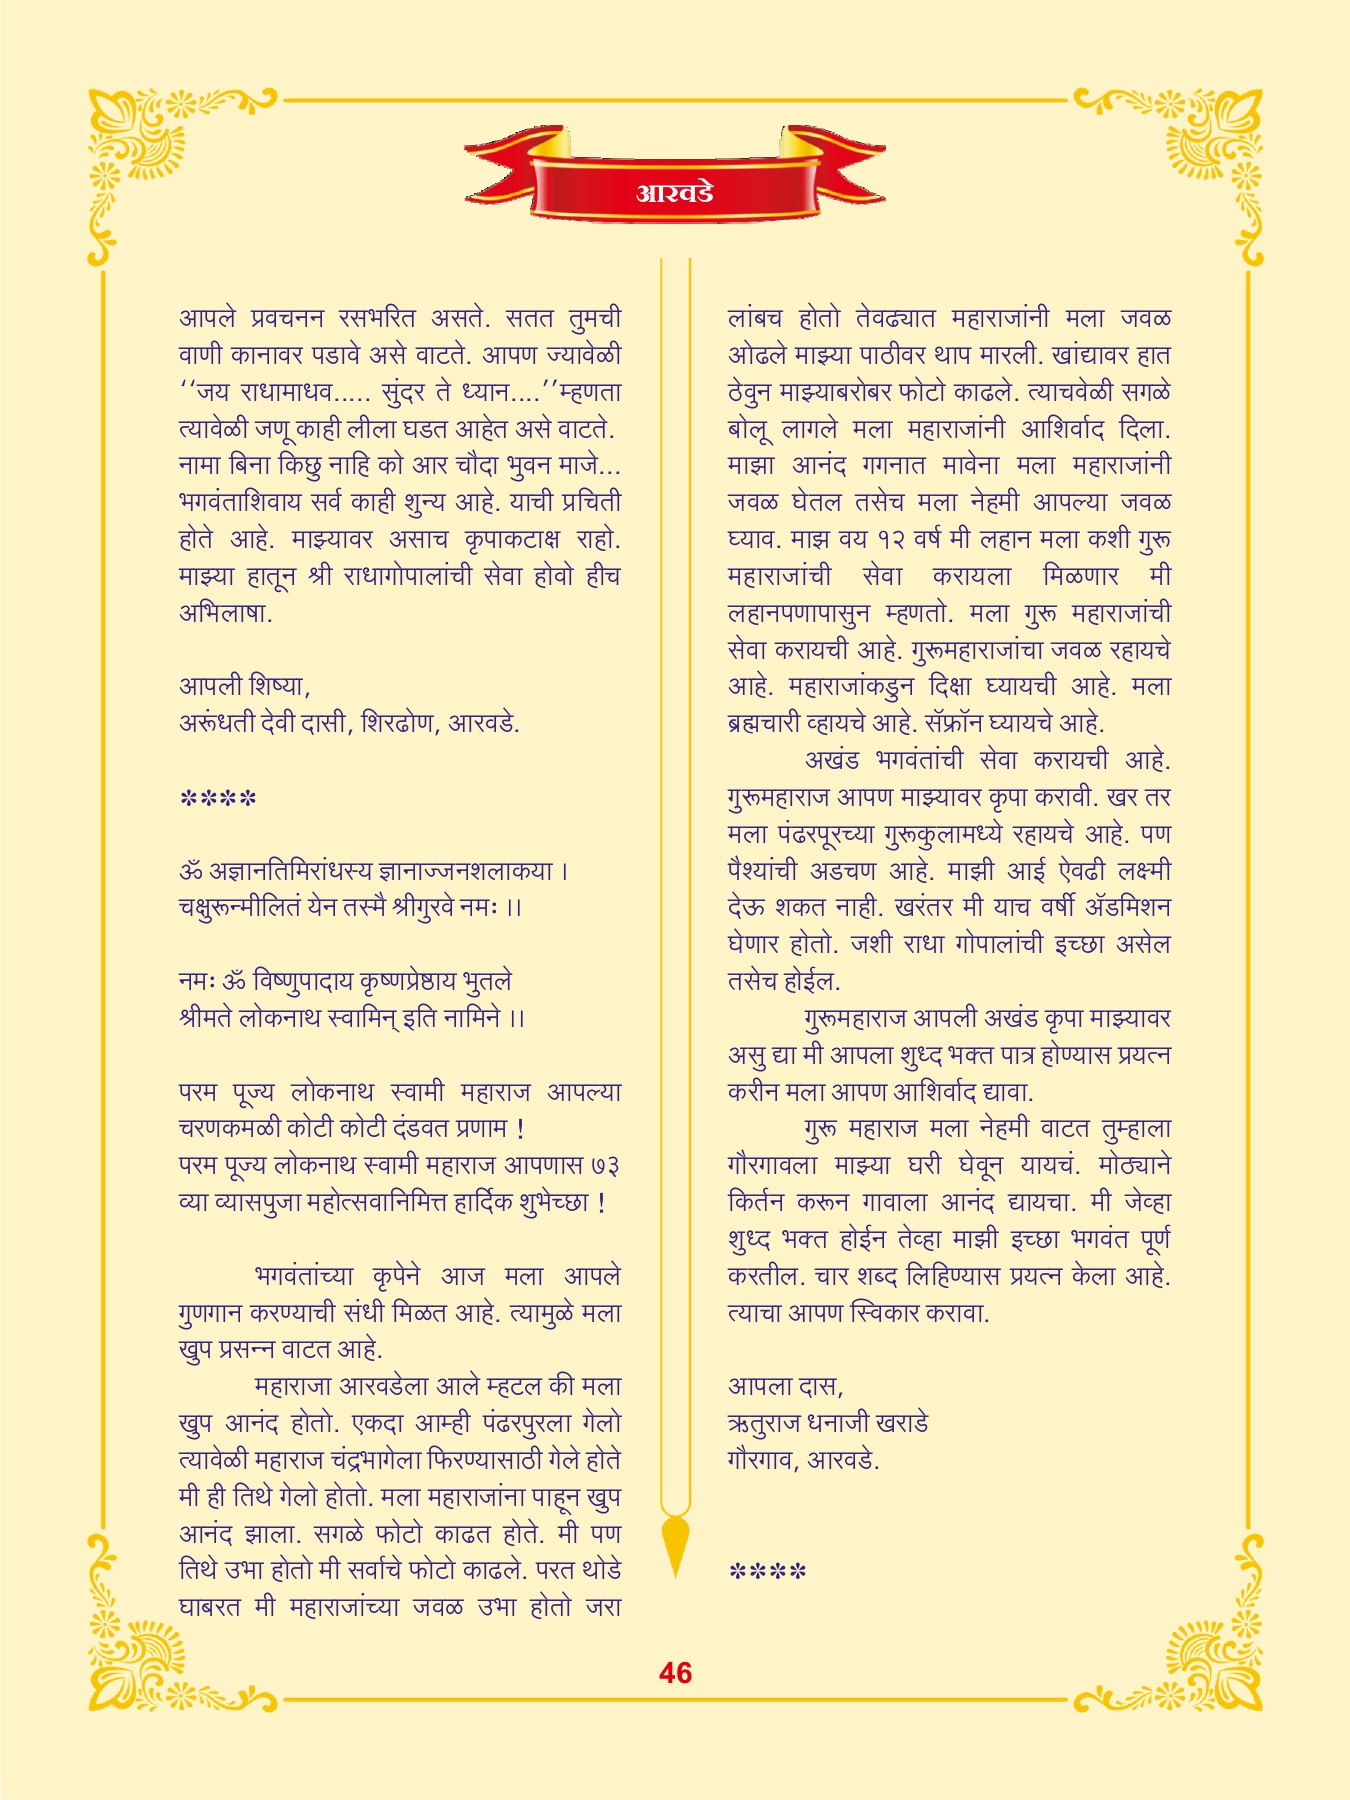 आरवडे
आपले प्रवचनन रसभरित असते. सतत तुमची
वाणी कानावर पडावे असे वाटते. आपण ज्यावेळी
‘‘जय राधामाधव..... सुंदर ते ध्यान....’’म्हणता
त्यावेळी जणू काही लीला घडत आहेत असे वाटते.
नामा बिना किछु नाहि को आर चौदा भुवन माजे...
भगवंताशिवाय सर्व काही शुन्य आहे. याची प्रचिती
होते आहे. माझ्यावर असाच कृपाकटाक्ष राहो.
माझ्या हातून श्री राधागोपालांची सेवा होवो हीच
अभिलाषा.
आपली शिष्या,
अरूंधती देवी दासी, शिरढोण, आरवडे.
****
ॐ अज्ञानतिमिरांधस्य ज्ञानाज्जनशलाकया ।
चक्षुरून्मीलितं येन तस्मै श्रीगुरवे नमः ।।
नमः ॐ विष्णुपादाय कृष्णप्रेष्ठाय भुतले
श्रीमते लोकनाथ स्वामिन् इति नामिने ।।
परम पूज्य लोकनाथ स्वामी महाराज आपल्या
चरणकमळी कोटी कोटी दंडवत प्रणाम !
परम पूज्य लोकनाथ स्वामी महाराज आपणास ७३
व्या व्यासपुजा महोत्सवानिमित्त हार्दिक शुभेच्छा !
भगवंतांच्या कृपेने आज मला आपले
गुणगान करण्याची संधी मिळत आहे. त्यामुळे मला
खुप प्रसन्न वाटत आहे.
महाराजा आरवडेला आले म्हटल की मला
खुप आनंद होतो. एकदा आम्ही पंढरपुरला गेलो
त्यावेळी महाराज चंद्रभागेला फिरण्यासाठी गेले होते
मी ही तिथे गेलो होतो. मला महाराजांना पाहून खुप
आनंद झाला. सगळे फोटो काढत होते. मी पण
तिथे उभा होतो मी सर्वाचे फोटो काढले. परत थोडे
घाबरत मी महाराजांच्या जवळ उभा होतो जरा
लांबच होतो तेवढ्यात महाराजांनी मला जवळ
ओढले माझ्या पाठीवर थाप मारली. खांद्यावर हात
ठेवुन माझ्याबरोबर फोटो काढले. त्याचवेळी सगळे
बोलू लागले मला महाराजांनी आशिर्वाद दिला.
माझा आनंद गगनात मावेना मला महाराजांनी
जवळ घेतल तसेच मला नेहमी आपल्या जवळ
घ्याव. माझ वय १२ वर्ष मी लहान मला कशी गुरू
महाराजांची सेवा करायला मिळणार मी
लहानपणापासुन म्हणतो. मला गुरू महाराजांची
सेवा करायची आहे. गुरूमहाराजांचा जवळ रहायचे
आहे. महाराजांकडुन दिक्षा घ्यायची आहे. मला
ब्रह्मचारी व्हायचे आहे. सॅफ्रॉन घ्यायचे आहे.
अखंड भगवंतांची सेवा करायची आहे.
गुरूमहाराज आपण माझ्यावर कृपा करावी. खर तर
मला पंढरपूरच्या गुरूकुलामध्ये रहायचे आहे. पण
पैश्यांची अडचण आहे. माझी आई ऐवढी लक्ष्मी
देऊ शकत नाही. खरंतर मी याच वर्षी ॲडमिशन
घेणार होतो. जशी राधा गोपालांची इच्छा असेल
तसेच होईल.
गुरूमहाराज आपली अखंड कृपा माझ्यावर
असु द्या मी आपला शुध्द भक्त पात्र होण्यास प्रयत्न
करीन मला आपण आशिर्वाद द्यावा.
गुरू महाराज मला नेहमी वाटत तुम्हाला
गौरगावला माझ्या घरी घेवून यायचं. मोठ्याने
किर्तन करून गावाला आनंद द्यायचा. मी जेव्हा
शुध्द भक्त होईन तेव्हा माझी इच्छा भगवंत पूर्ण
करतील. चार शब्द लिहिण्यास प्रयत्न केला आहे.
त्याचा आपण स्विकार करावा.
आपला दास,
ऋतुराज धनाजी खराडे
गौरगाव, आरवडे.
****
46